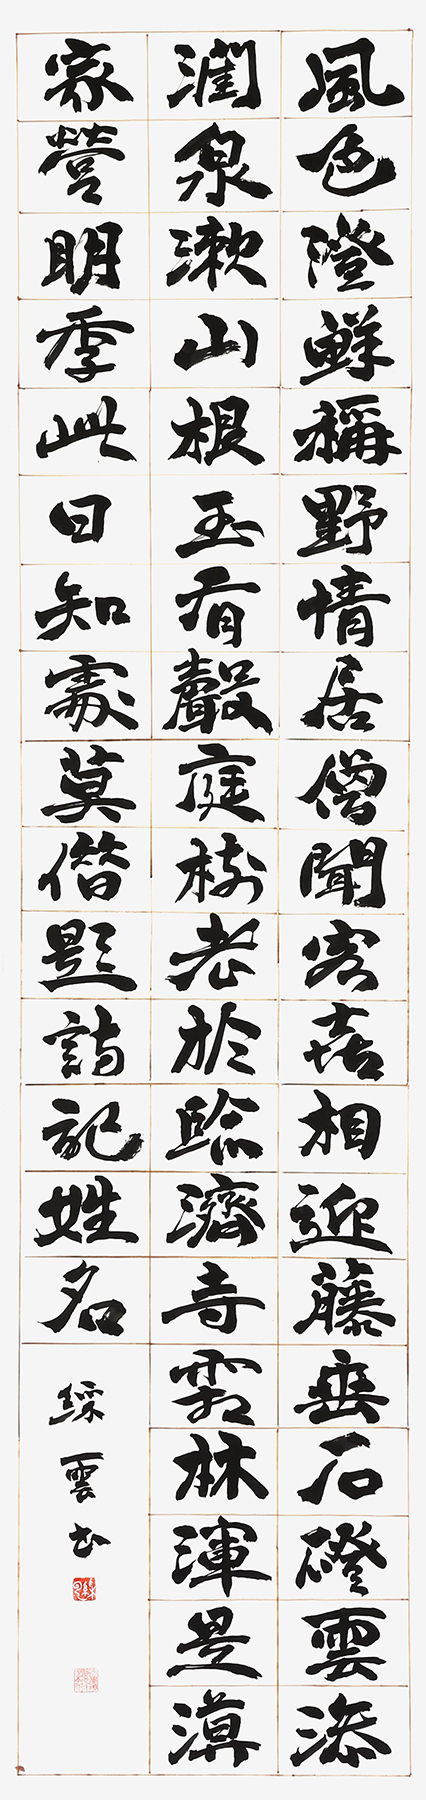 風色澄鮮稱野情居僧聞客喜相迎藤垂石磴雲添
潤泉漱山根玉有聲庭樹老於臨濟寺霜林渾是漢
家營明秊此日知處莫惜題詩記姓名
綵雲书